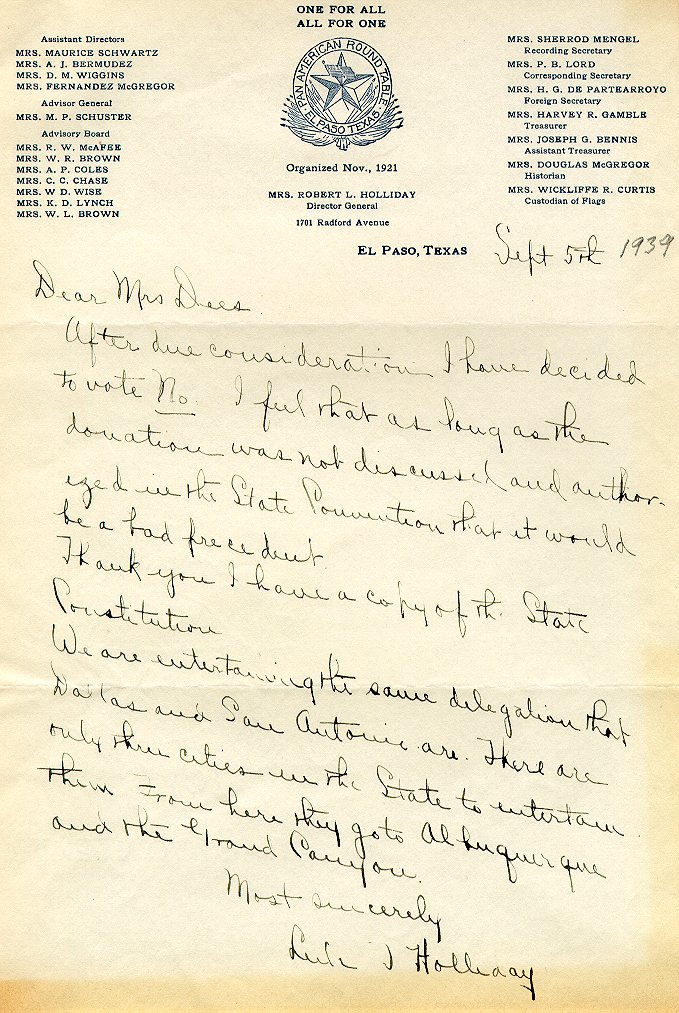 ONE FOR ALL
ALL FOR ONE
Assistant Directors
MRS. MAURICE SCHWARTZ
MRS. A. J. BERMUDEZ
MRS. D. M. WIGGINS
MRS. FERNANDEZ McGREGOR
Advisor General
MRS. M. P. SCHUSTER
Advisory Board
MRS. R. W. McAFEE
MRS. W. R. BROWN
MRS. A. P. COLES
MRS. C. C. CHASE
MRS. W D. WISE
MRS. K. D. LYNCH
MRS. W. L. BROWN
PAN AMERICAN ROUND TABLE
EL PASO TEXAS
Organized Nov., 1921
MRS. ROBERT L. HOLLIDAY
Director General
1701 Radford Avenue
MRS. SHERROD MENGEL
Recording Secretary
MRS. P. B. LORD
Corresponding Secretary
MRS. H. G. DE PARTEARROYO
Foreign Secretary
MRS. HARVEY R. GAMBLE
Treasurer
MRS. JOSEPH G. BENNIS
Assistant Treasurer
MRS. DOUGLAS McGREGOR
Historian
MRS. WICKLIFFE R. CURTIS
Custodian of Flags
EL PASO, TEXAS Sept 5th 1939
Dear Mrs Dees
After due consideration I have decided
to vote No. I feel that as long as the
donation was not discussed and author-
ized in the State Convention that it would
be a bad precedent.
Thank you I have a copy of the State
Constitution
We are entertaining the same delegation that
Dallas and San Antonio are. There are
only three cities in the State to entertain
them From here they go to Albuquerque
and the Grand Canyon.
Most sincerely
Holliday